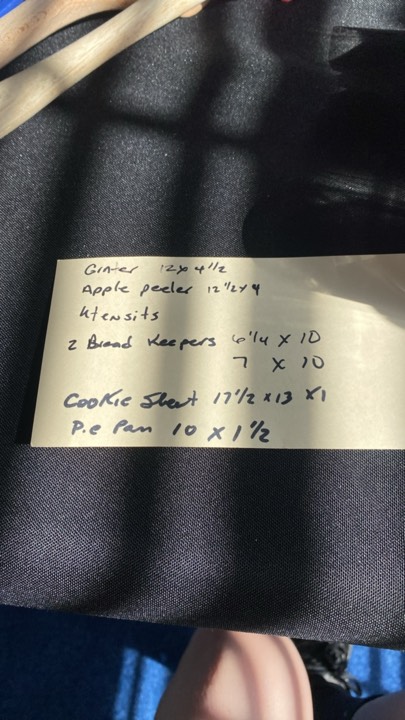 Ginter 12x 4 1/2
Apple peeler 12 1/2 x 4
Utensits
2 Bread Keepers 6 1/4 x 10
7 x 10
Cookie Sheet 17 1/2 x 13 x 1
Pie Pan 10 x 1 1/2